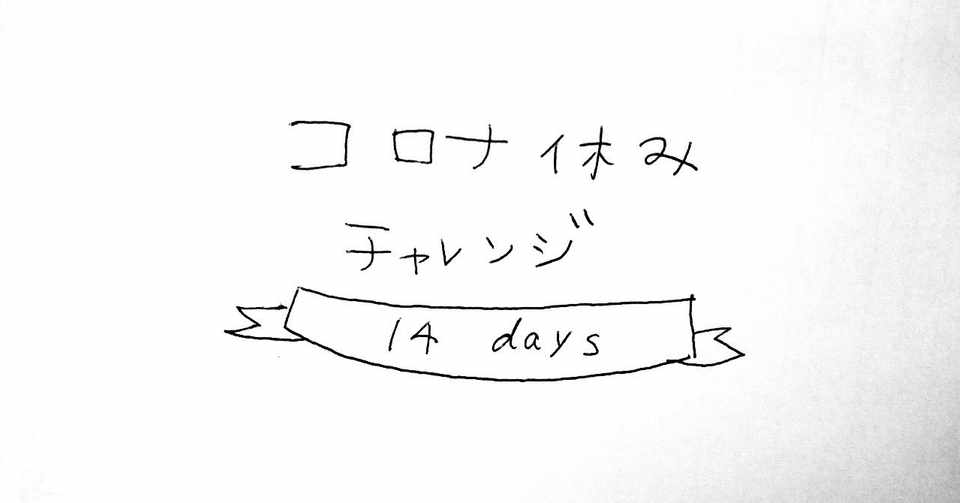 コロナ休み
チャレンジ
14 days